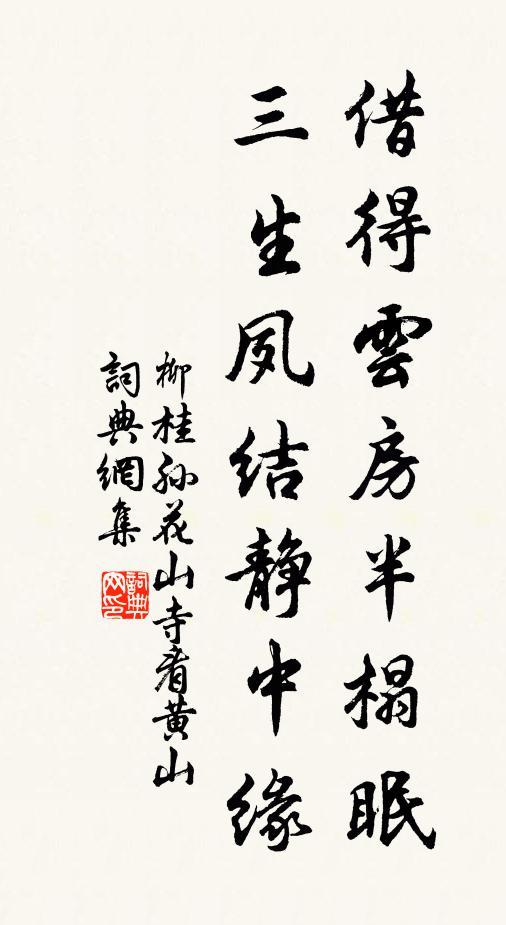 借得雲房半榻眠
三生夙结静中缘
柳桂孙花山寺看黄山
詞典網集
詞典网印